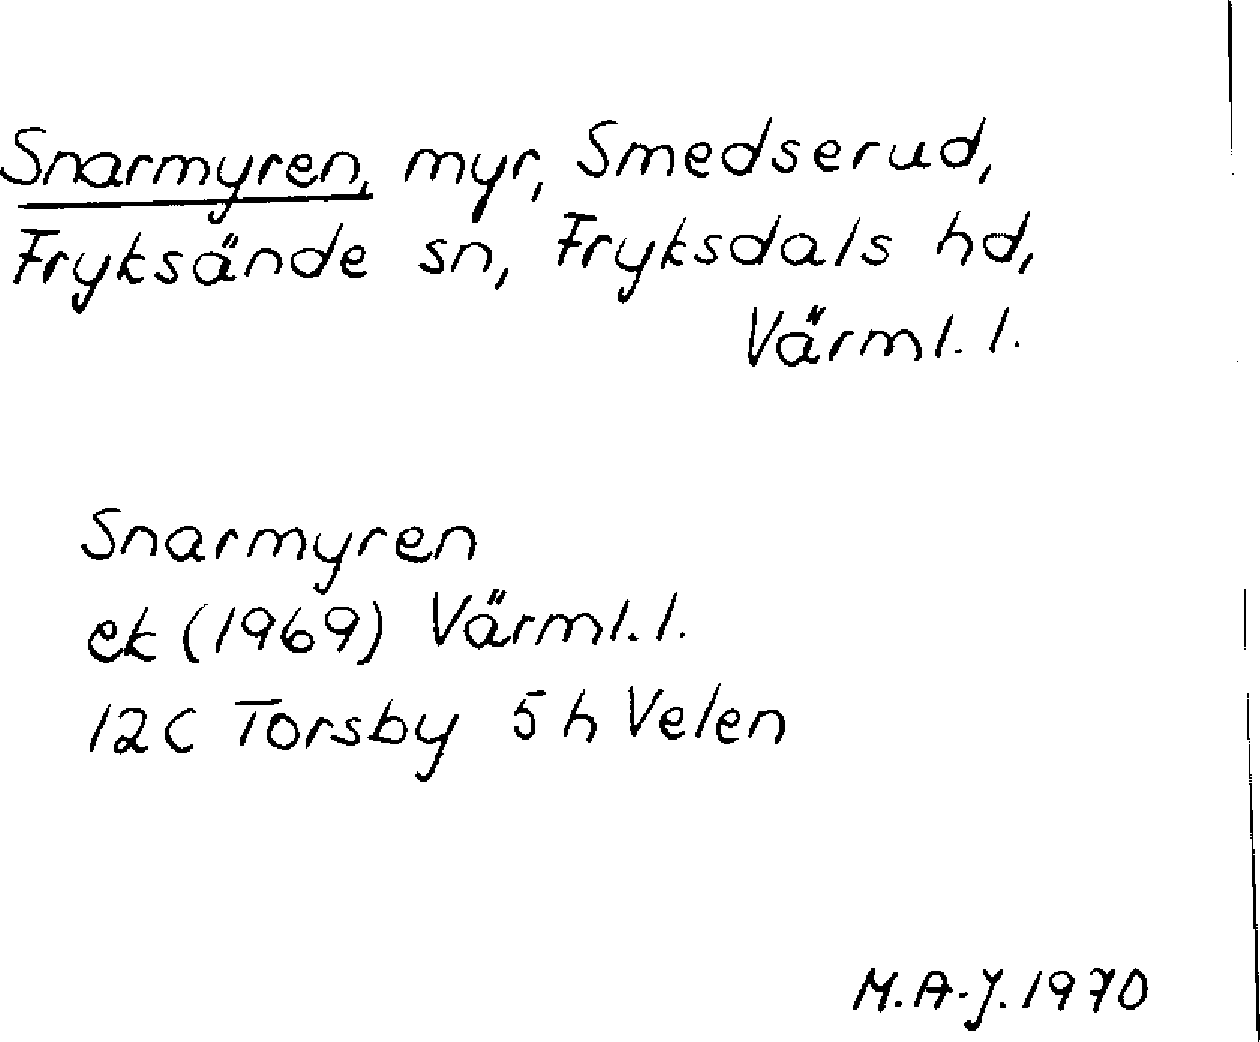 Snarmyren, myr, Smedserud,
Fryksände sn, Fryksdals hd,
Värml. l.
Snarmyren
ek (1969) Värml. l.
12C Torsby 5h Velen
M.A-J. 1970